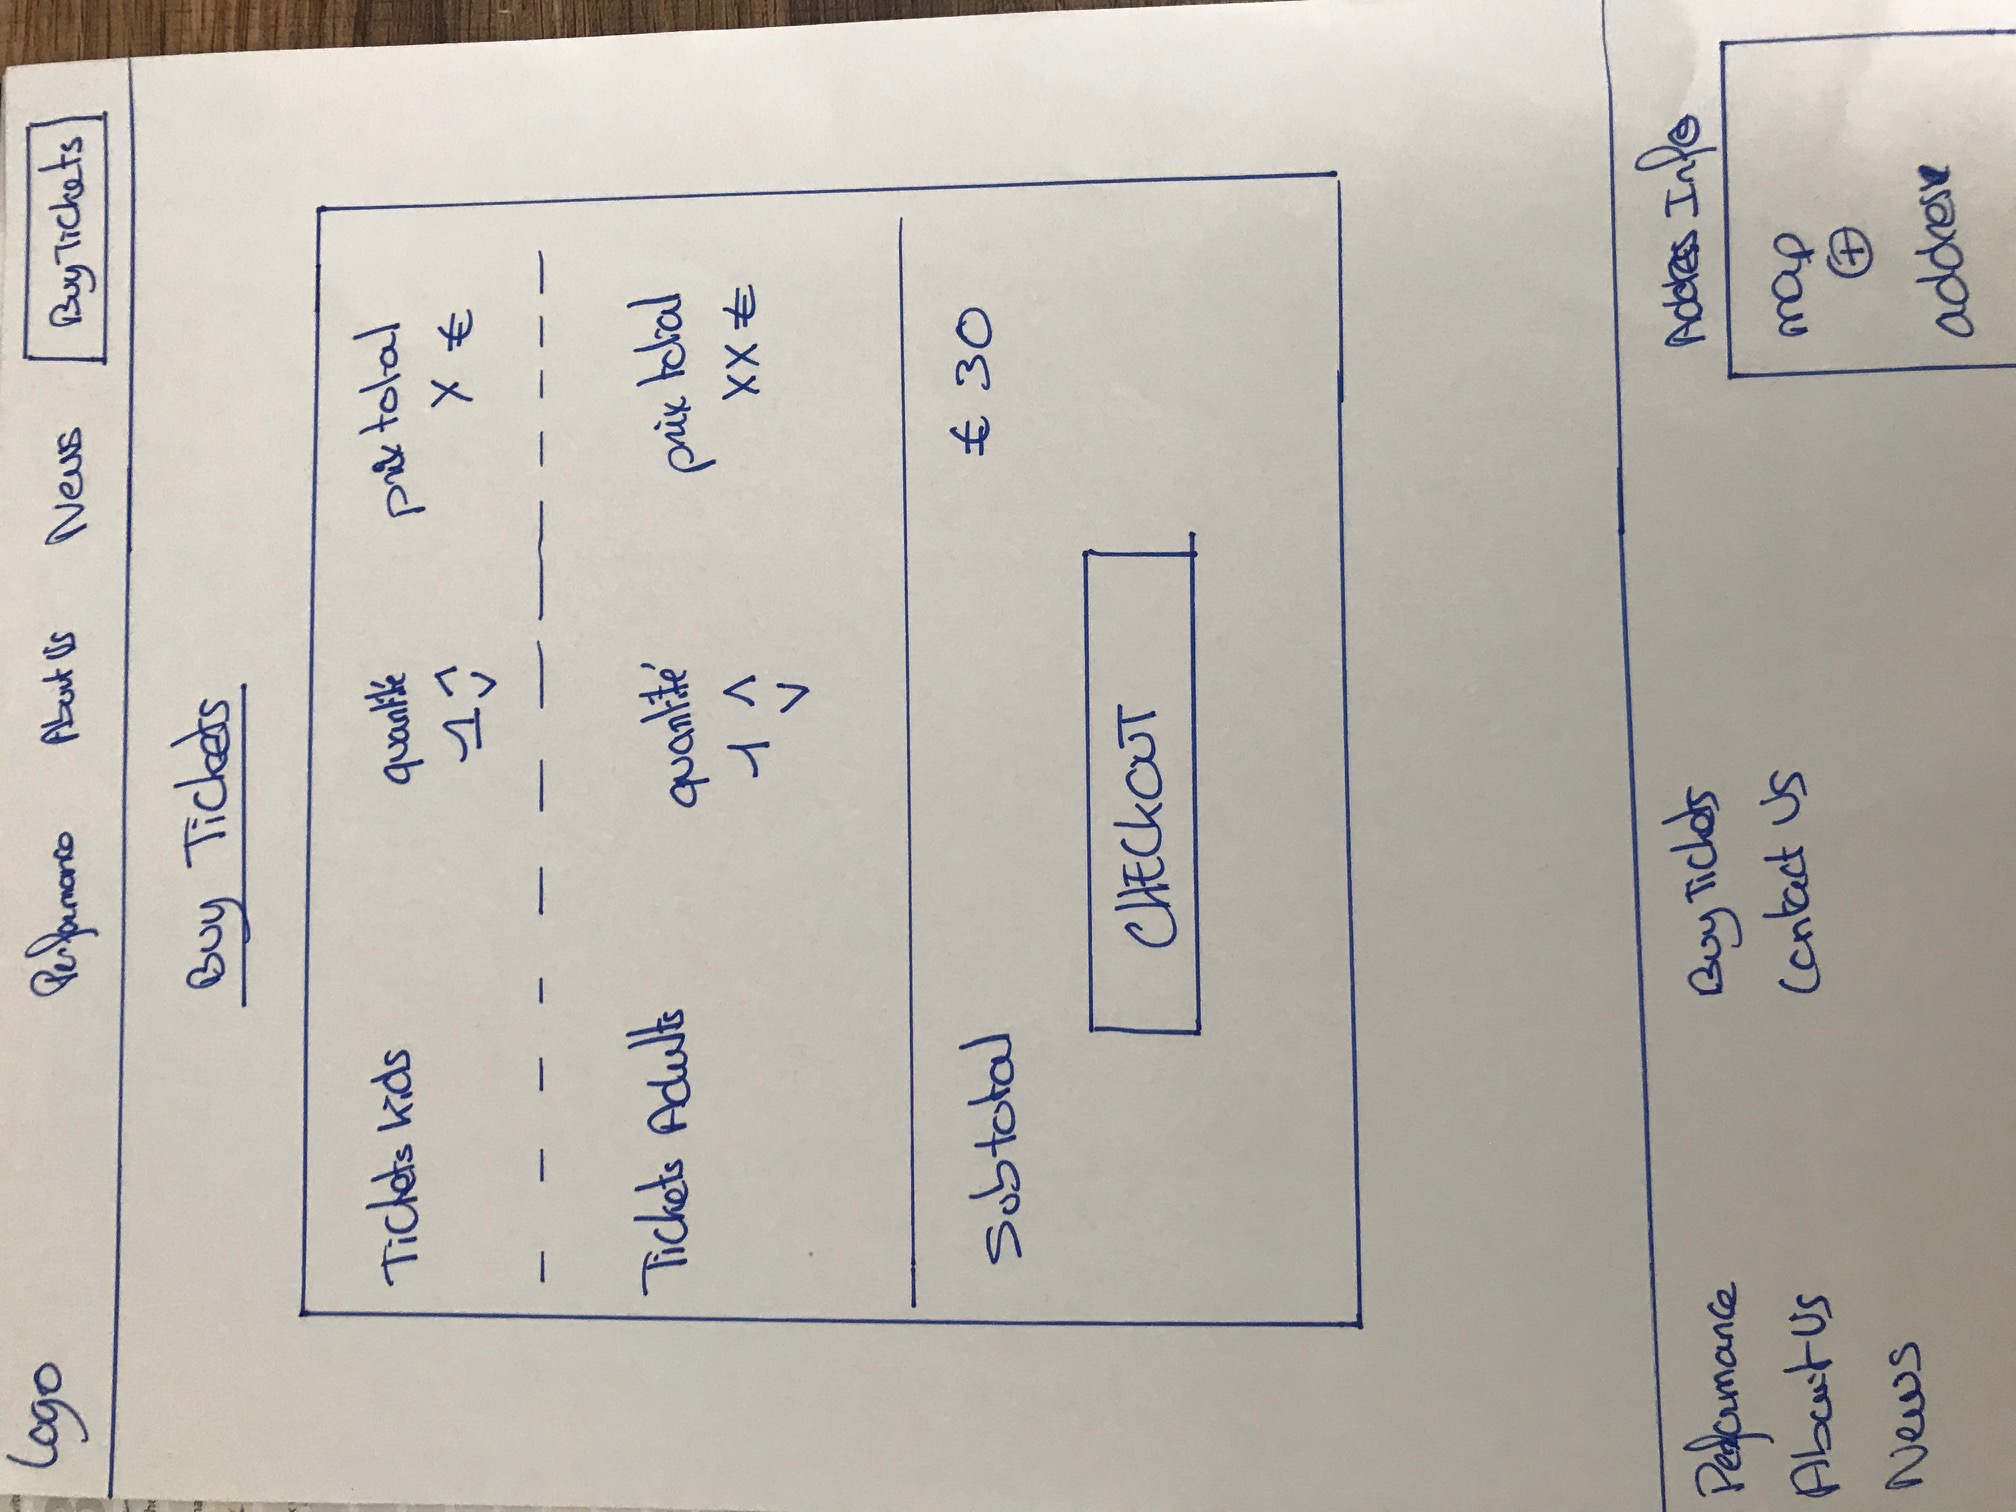 Logo Performance About Us News Buy Tickets
Buy Tickets
Tickets kids quantité prix total
1 X €
Tickets Adults quantité prix total
1 XX €
Subtotal € 30
CHECKOUT
Performance Buy Tickets Address Info
About Us Contact Us map
News address